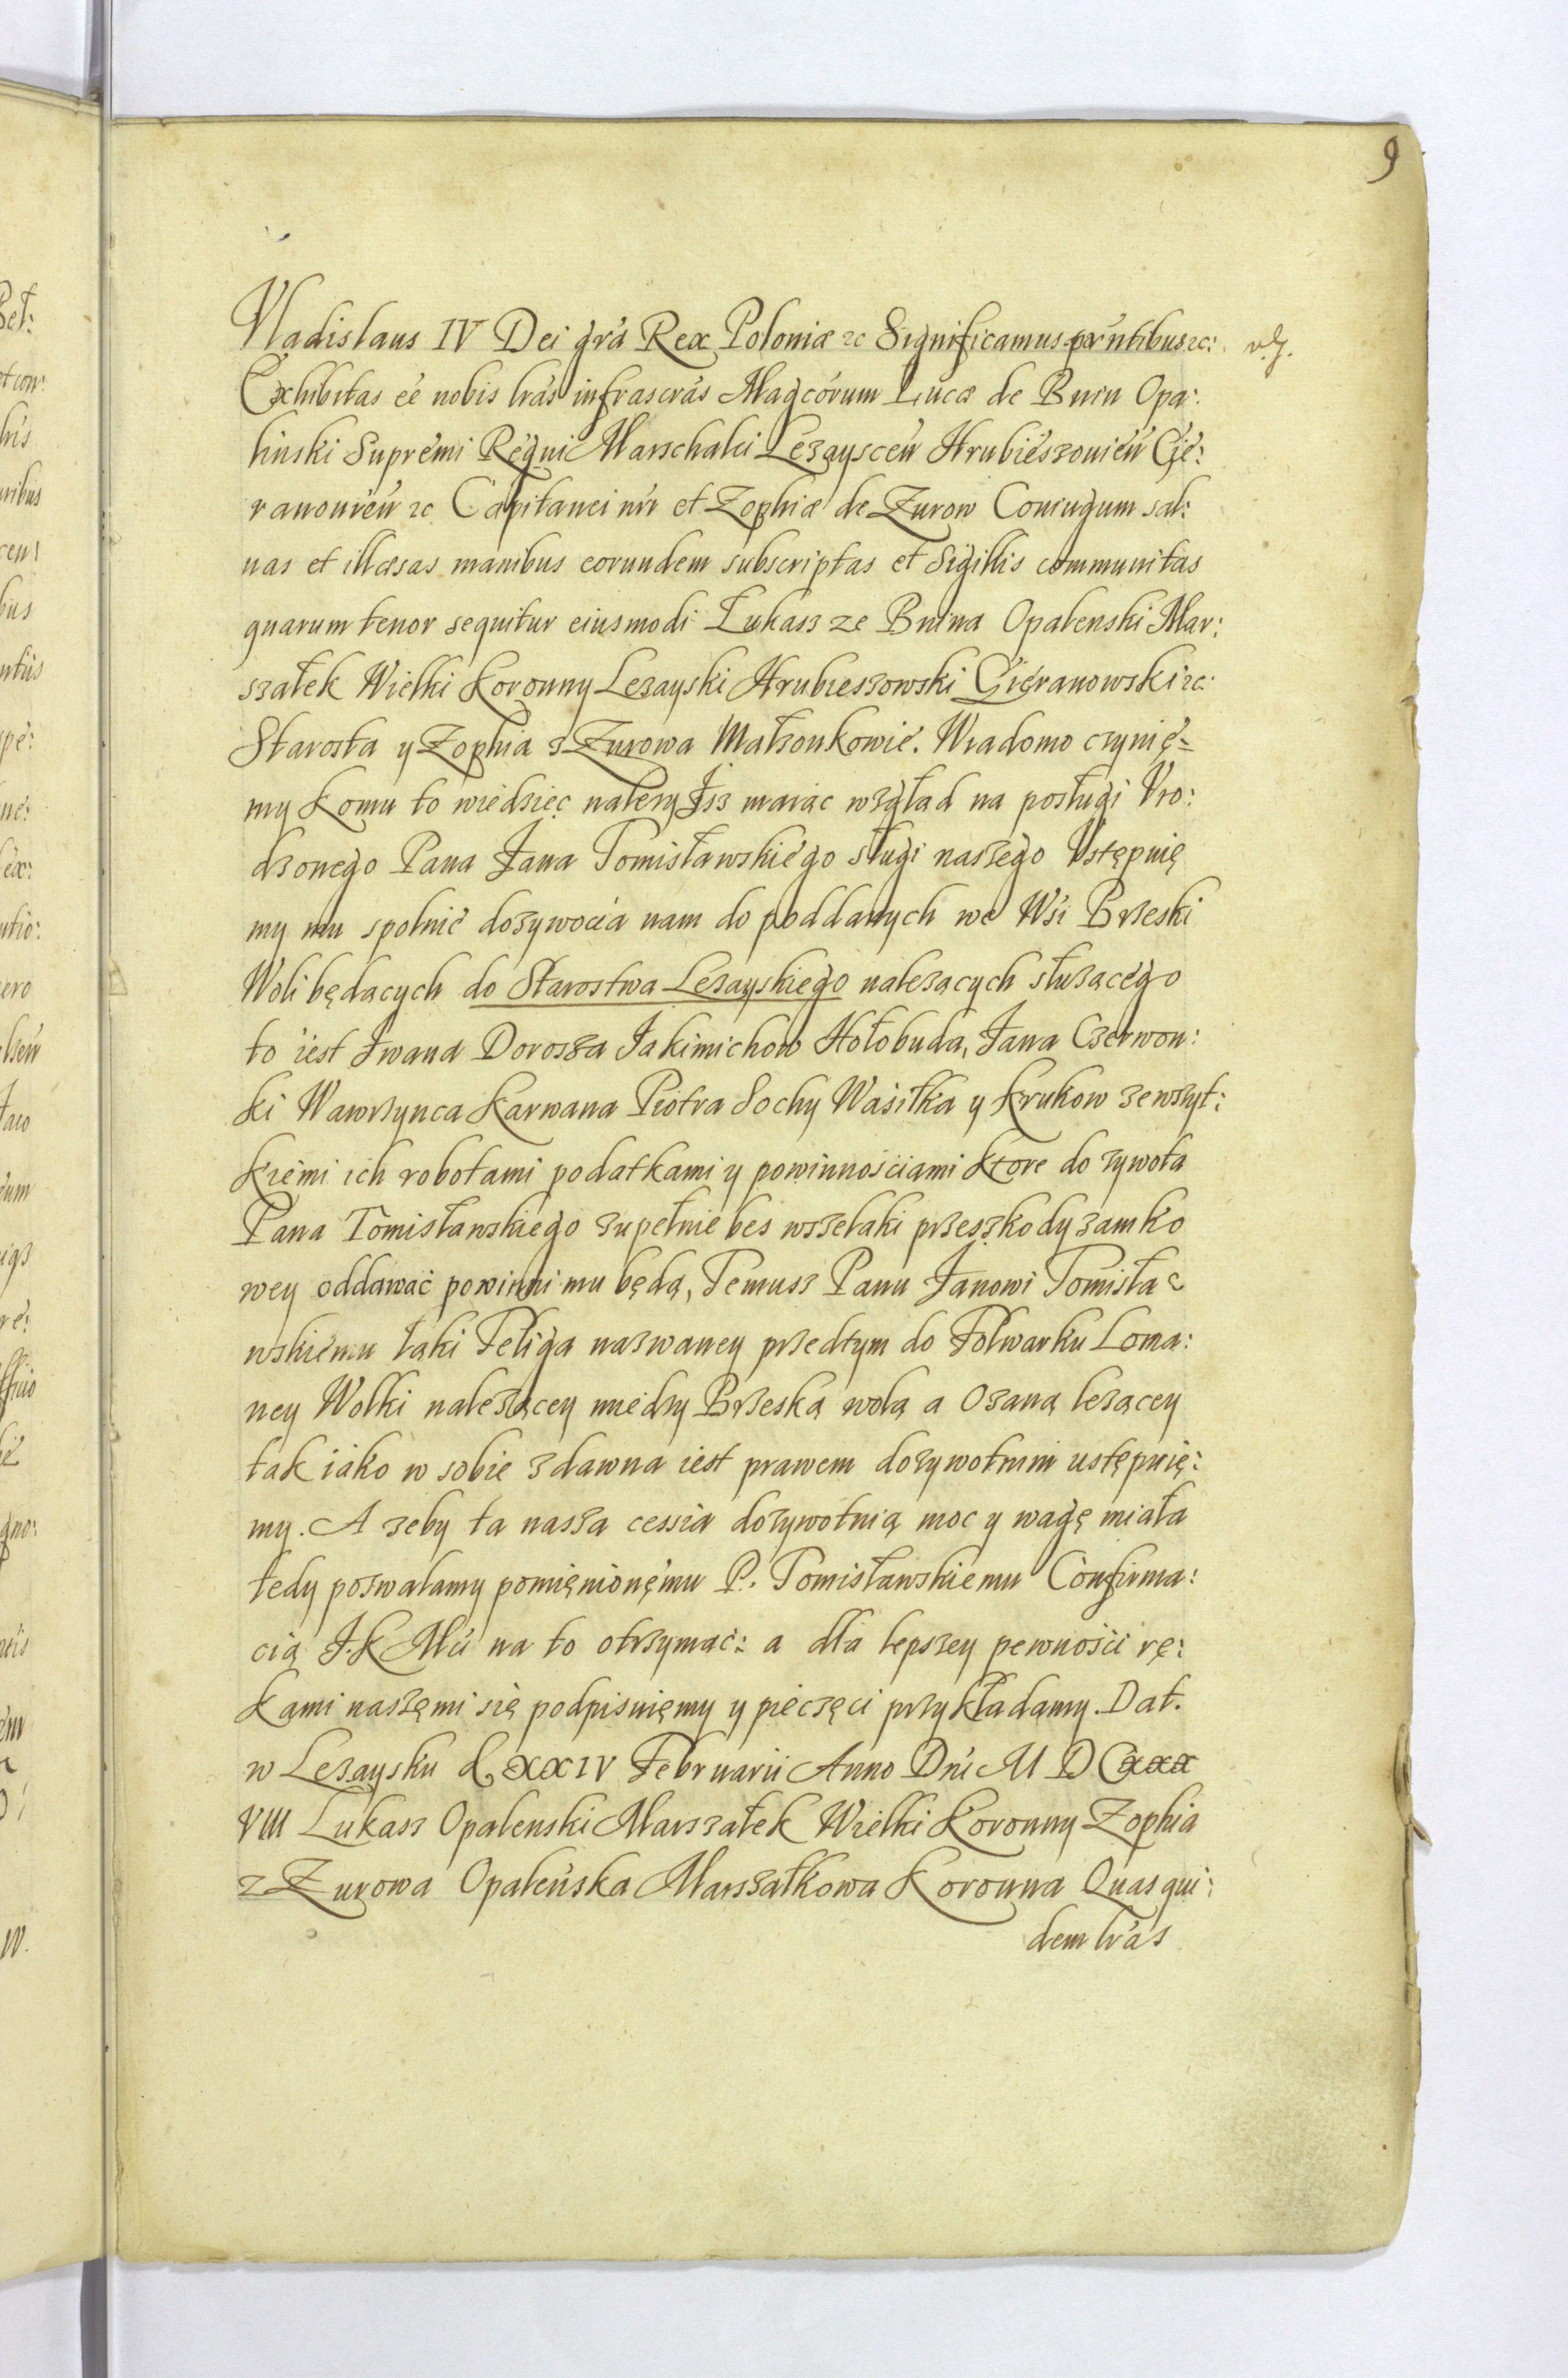 9
Vladislaus IV Dei gra Rex Poloniæ etc Significamus prntibus etc:
Exhibitas eé nobis lrás infrascrás Magcórum Lucæ de Bnin Opa:
linski Supremi Regni Marschalci Lezayscen Hrubieszowien Gie:
ranowien etc Capitanei nri et Zophiæ de Zurow Coniugum sal:
uas et illæsas manibus eorundem subscriptas et Sigillis communitas
quarum tenor sequitur eiusmodi Łukasz ze Bnina Opalenski Mar:
szałek Wielki Koronny Lezayski Hrubieszowski Gieranowski etc:
Starosta y Zophia z Zurowa Małzonkowie. Wiadomo czynię:
my Komu to wiedziec nalezy Isz maiąc wzgląd na posługi Vro:
dzonego Pana Jana Tomisławskiego sługi naszego Vstępuię
my mu spolnie dozywocia nam do poddanych we Wsi Brzeski
Woli będacych do Starostwa Lezayskiego nalezących słuzącego
to iest Iwana Dorosza Jakimichow Hołobuda, Jana Czerwon:
ki Wawrzynca Karwana Piotra Sochy Wasiłka y Krukow ze wszyt:
kiemi ich robotami podatkami y powinnościami ktore do zywota
Pana Tomisławskiego zupełnie bes wszelaki przeszkody zamko
wey oddawać powinni mu będą, Temusz Panu Janowi Tomisła
wskiemu łąki Feliga nazwaney przedtym do Folwarku Loma:
ney Wolki nalezącey miedzy Brzeską wolą a Ozaną lezącey
tak iako w sobie zdawna iest prawem dozywotnim ustępuię:
my. A zeby ta nasza cessia dozywotnią moc y wagę miała
tedy pozwalamy pomięnionęmu P. Tomisławskiemu Confirma:
cią J. K Mći na to otrzymać: a dla lepszey pewności rę:
kami naszęmi się podpisuięmy y pieczęci przykładamy. Dat.
w Lezaysku d. XXIV Februarii Anno Dni M D CXXX
VIII Lukasz Opalenski Marszałek Wielki Koronny Zophia
z Zurowa Opaleńska Marszałkowa Koronna Quas qui:
dem lrás